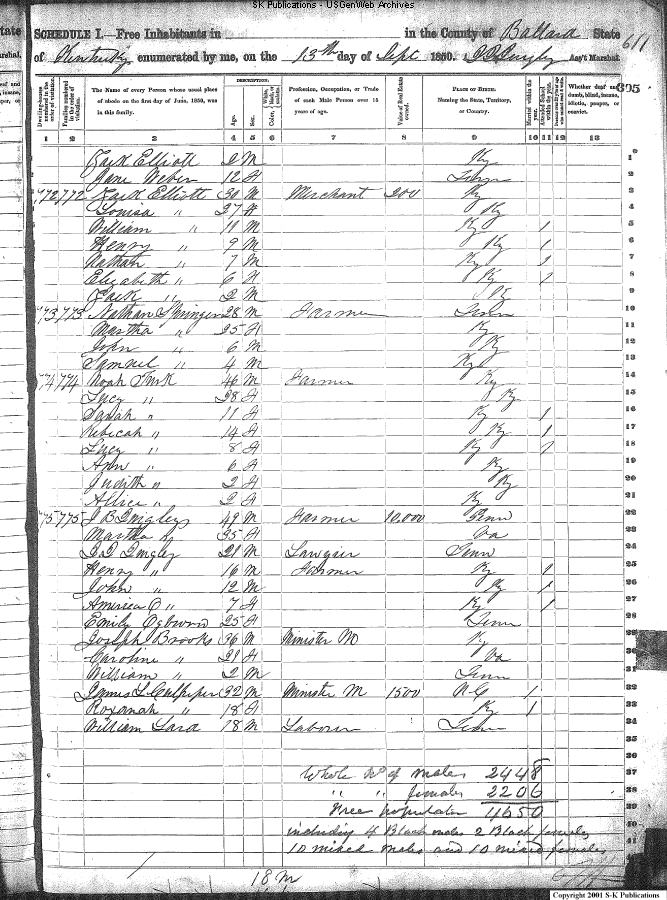 SK Publications - USGenWeb Archives
SCHEDULE I.—Free Inhabitants in in the County of Ballard State
of Kentucky enumerated by me, on the 13th day of Sept 1850. Ass't Marshal.
611
395
Dwelling-houses numbered in the order of visitation.
Families numbered in the order of visitation.
The Name of every Person whose usual place of abode on the first day of June, 1850, was in this family.
DESCRIPTION.
Age.
Sex.
Color,
Profession, Occupation, or Trade of each Male Person over 15 years of age.
Value of Real Estate owned.
PLACE OF BIRTH.
Naming the State, Territory, or Country.
Married within the year.
Attended School within the year.
Whether deaf and dumb, blind, insane, idiotic, pauper, or convict.
1 2 3 4 5 6 7 8 9 10 11 12 13
Zack Elliott 2 M Ky 1
Jane Weber 12 F 2
772 772 Zack Elliott 30 M Merchant 200 Ky 3
Louisa " 27 F Ky 4
William " 11 M Ky 1 5
Henry " 9 M Ky 1 6
Nathan " 7 M Ky 1 7
Elizabeth " 6 F Ky 1 8
Zack " 2 M Ky 9
773 773 Nathan Springer 28 M Farmer Tenn 10
Martha " 25 F Ky 11
John " 6 M Ky 12
Samuel " 4 M Ky 13
774 774 Noah Turk 46 M Farmer Ky 14
Lucy " 38 F Ky 15
Sarah " 11 F Ky 1 16
Rebicah " 14 F Ky 1 17
Lucy " 8 F Ky 1 18
Ann " 6 F Ky 19
Judith " 2 F Ky 20
Allice " 2 F Ky 21
775 775 J B Quigley 49 M Farmer 10,000 Tenn 22
Martha 35 F Va 23
Quigley 21 M Lawyier Tenn 24
Henry " 16 M Farmer Ky 1 25
John " 12 M Ky 1 26
America " 7 F Ky 1 27
Emily Ogburn 25 F Tenn 28
Joseph Brooks 36 M Minister M Ky 29
Caroline " 21 F Va 30
William " 2 M Tenn 31
James L Culpeper 32 M Minister M 1500 N C 1 32
Roxanah " 18 F Ky 1 33
William Lard 18 M Labourer Tenn 34
35
Whole No of males 2448 37
" " females 2206 38
Free population 4650 39
including 4 Black males 2 Black females 40
10 mixed males and 10 mixed females 41
18 M
Copyright 2001 S-K Publications